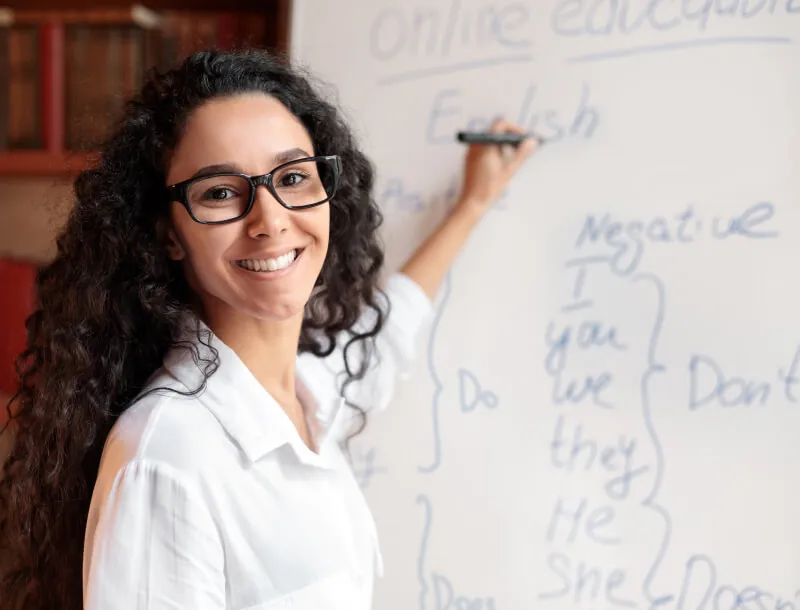 Online education
English
Negative
I
you
we
they
Do
Don't
He
She
Does
Doesn't